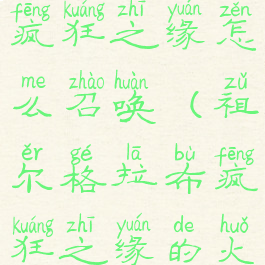 fēng kuáng zhī yuán zěn
疯狂之缘怎
me zhào huàn zǔ
么召唤（祖
ěr gé lā bù fēng
尔格拉布疯
kuáng zhī yuán de huǒ
狂之缘的火